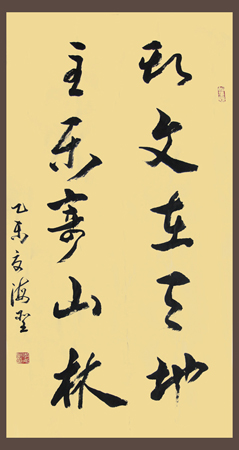 文在天地
至乐寄山林
乙未夏海